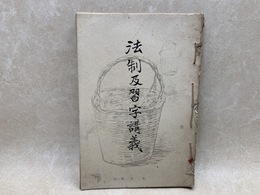 法制及習字講義